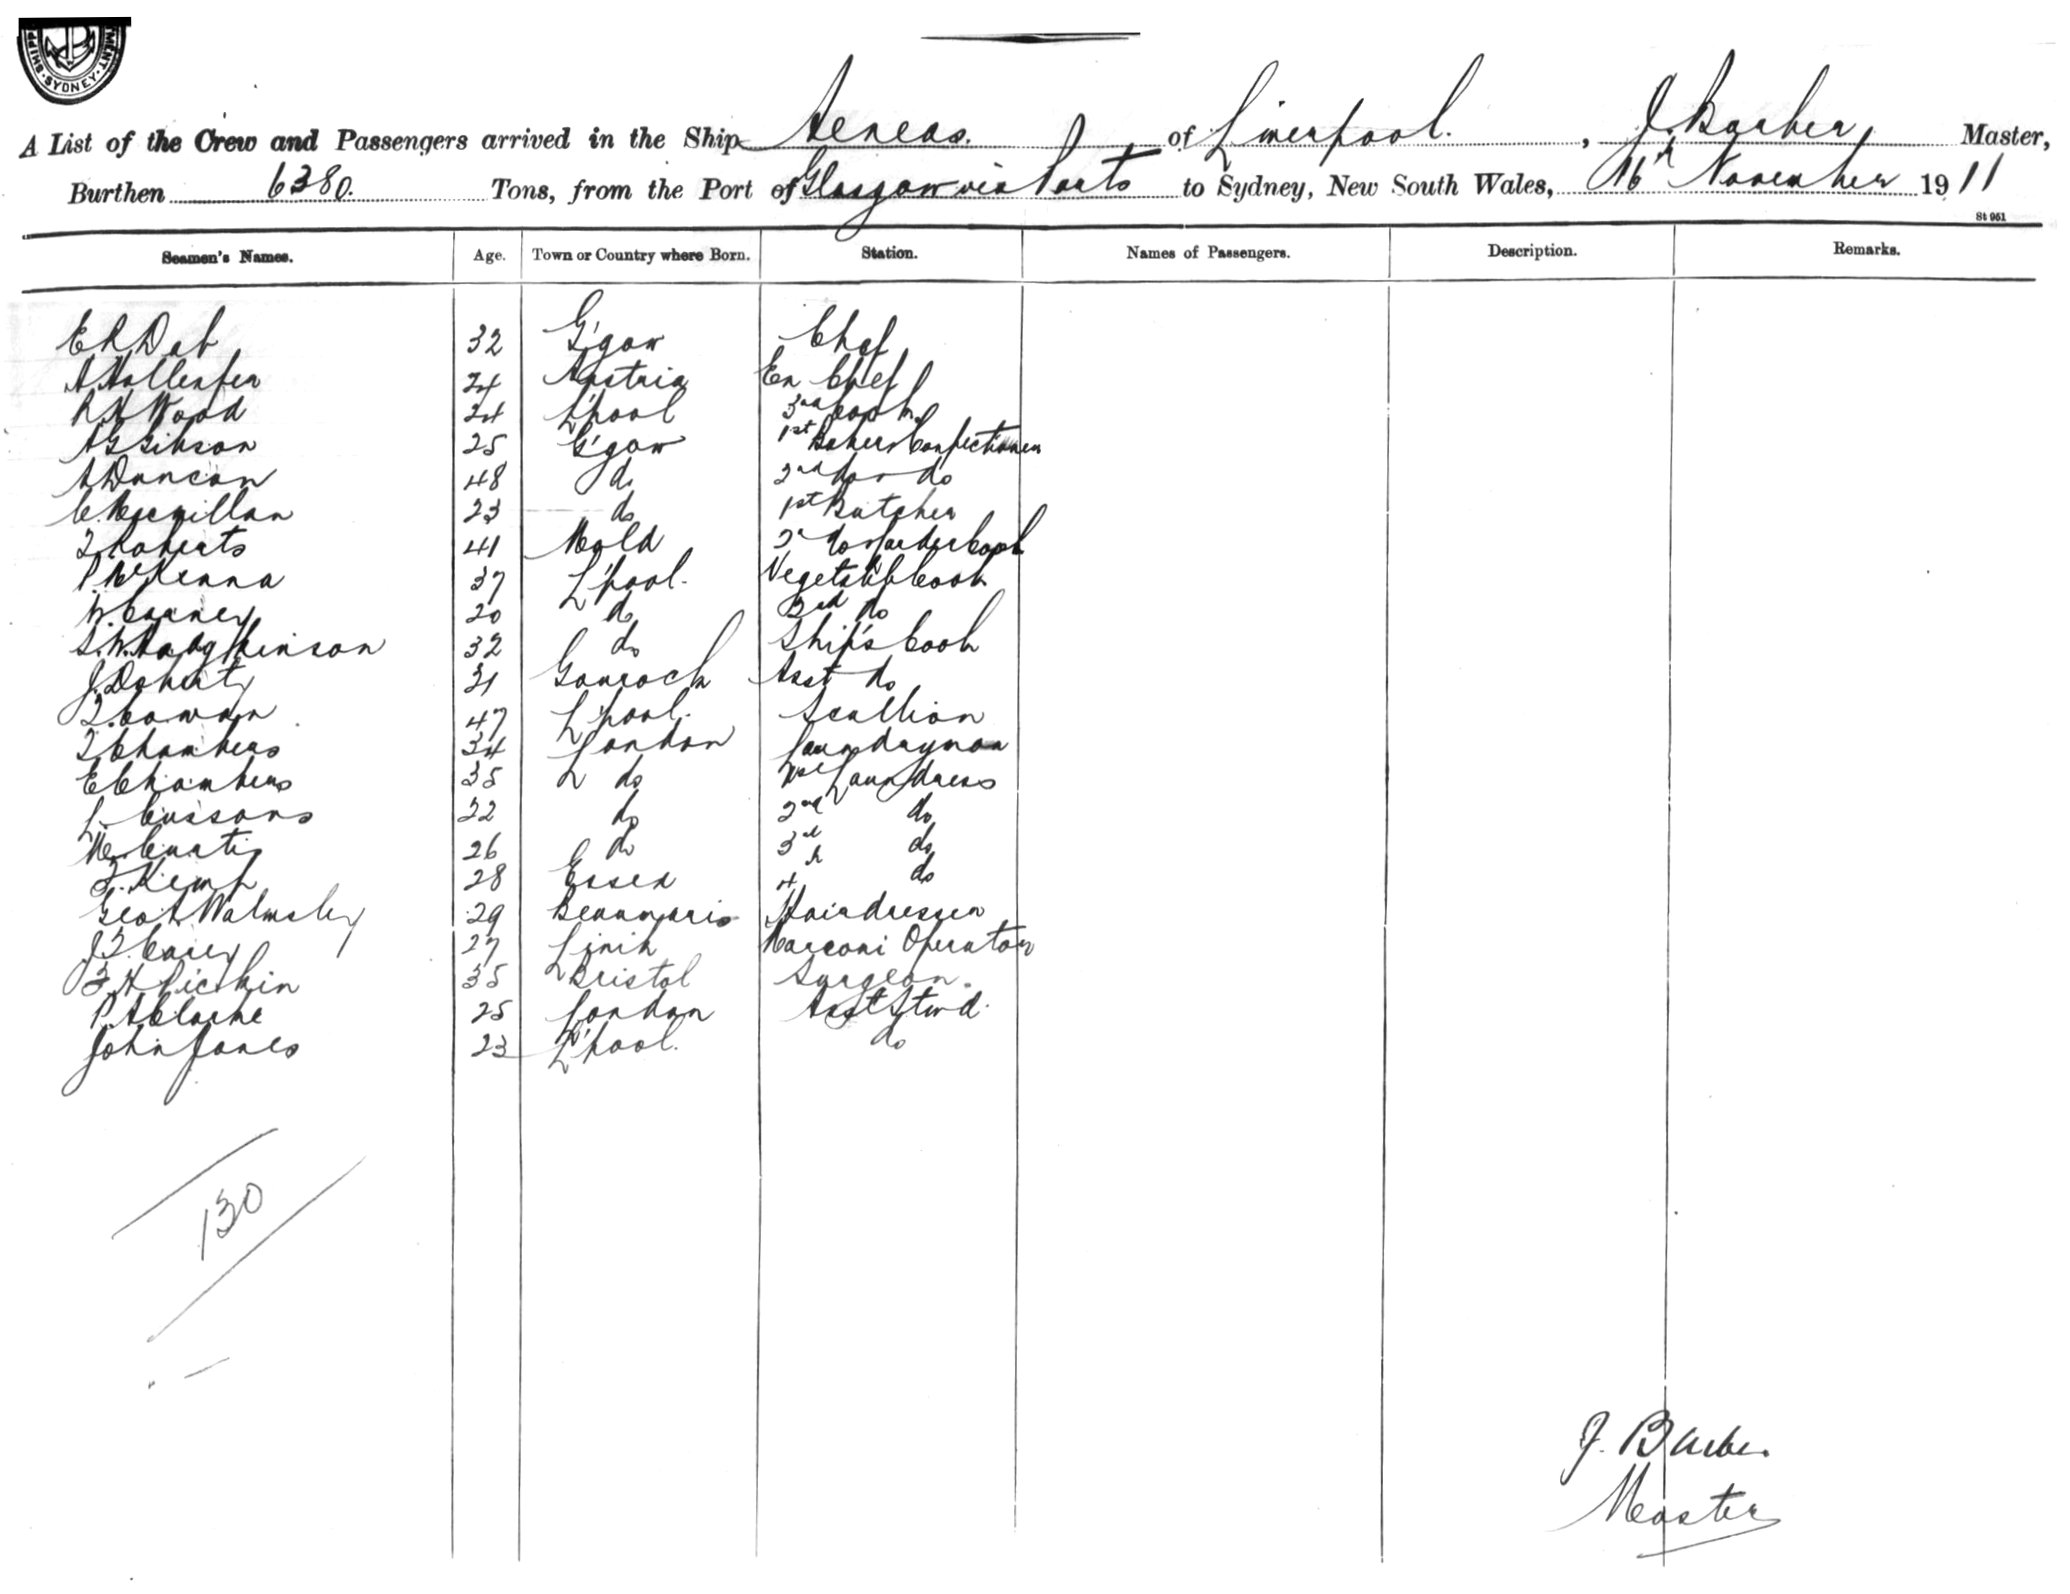 SHIPP MENT. SYDNEY.
A List of the Crew and Passengers arrived in the Ship Aeneas. of Liverpool. , J. Barber Master,
Burthen 6380. Tons, from the Port of Glasgow via Ports to Sydney, New South Wales, 16th November 1911
St 961
Seamen's Names. Age. Town or Country where Born. Station. Names of Passengers. Description. Remarks.
E R Dab 32 G'gow Chef
A 24 Austria En Chef
R H Wood 24 L'pool 3rd Cook
A G Gibson 25 G'gow 1st Baker Confectioner
A Duncan 48 do 2nd do do
C. Macmillan 23 do 1st Butcher
T Roberts 41 Mold 2n do Larder Cook
P. McKenna 37 L'pool. Vegetable Cook
W. Carney 20 do 2nd do
S. W. Hodgkinson 32 do Ship's Cook
J. Doherty 31 Gourock Asst do
T. Cowan 47 L'pool. Scullion
T Chambers 34 London Laundryman
E Chambers 35 do 1st Laundress
L. Cussons 22 do 2nd do
M. Curtis 26 do 3rd do
F. Kemp 28 Essex 4th do
Geo A Walmsley 29 Beaumaris Hairdresser
J. T. Carey 27 Marconi Operator
F H Pickin 35 Bristol Surgeon.
P. A Clarke 25 London Asst Stwd.
John Jones 23 L'pool. do
130
J. Barber
Master